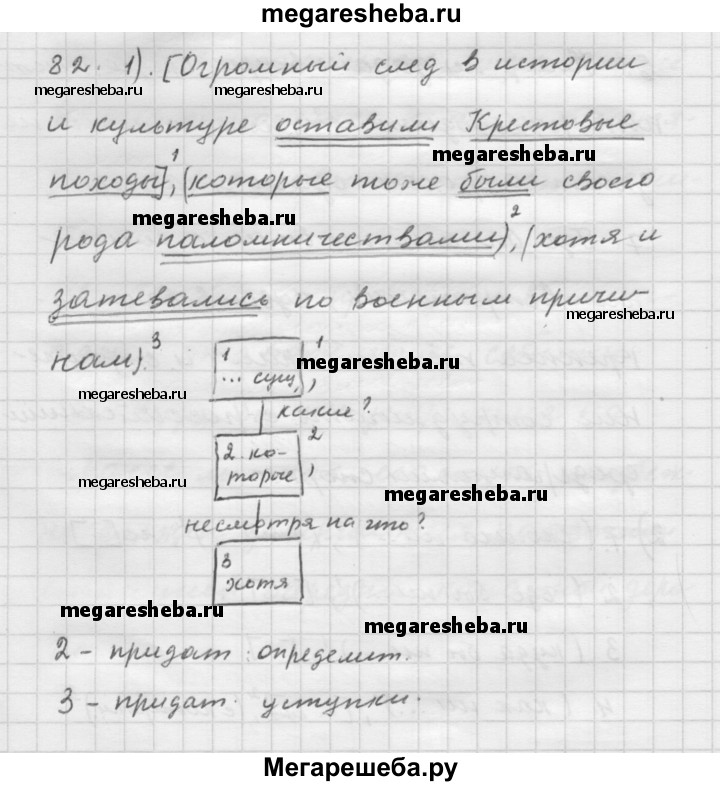 megaresheba.ru
82. 1). [Огромный след в истории
megaresheba.ru megaresheba.ru
и культуре оставили Крестовые
megaresheba.ru
походы]¹, (которые тоже были своего
megaresheba.ru
рода паломничествами)², (хотя и
затевались по военным причи-
megaresheba.ru
нам).³
1
... сущ. 1
,
megaresheba.ru
megaresheba.ru
какие?
2. ко-
торые 2
,
megaresheba.ru
megaresheba.ru
несмотря на что?
3
хотя
megaresheba.ru
megaresheba.ru
2 - придат. определит.
3 - придат. уступки.
Мегарешеба.ру